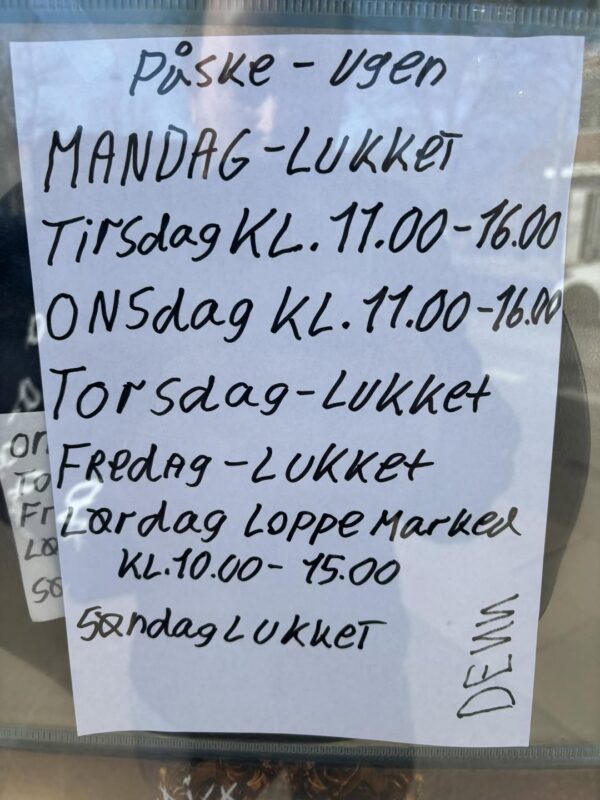 Påske - Ugen
MANDAG - LUKKET
Tirsdag KL. 11.00 - 16.00
ONSdag KL. 11.00 - 16.00
Torsdag - LUKKet
FRedAg - LUKKet
Lørdag LoppeMarked
KL. 10.00 - 15.00
Søndag LUKKeT
On
To
Fr
Lø
Sø